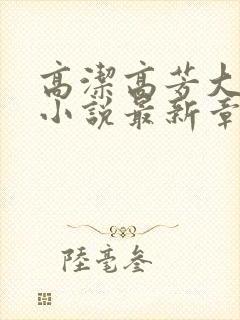 高潔高芳大
小說最新章
陸毫參